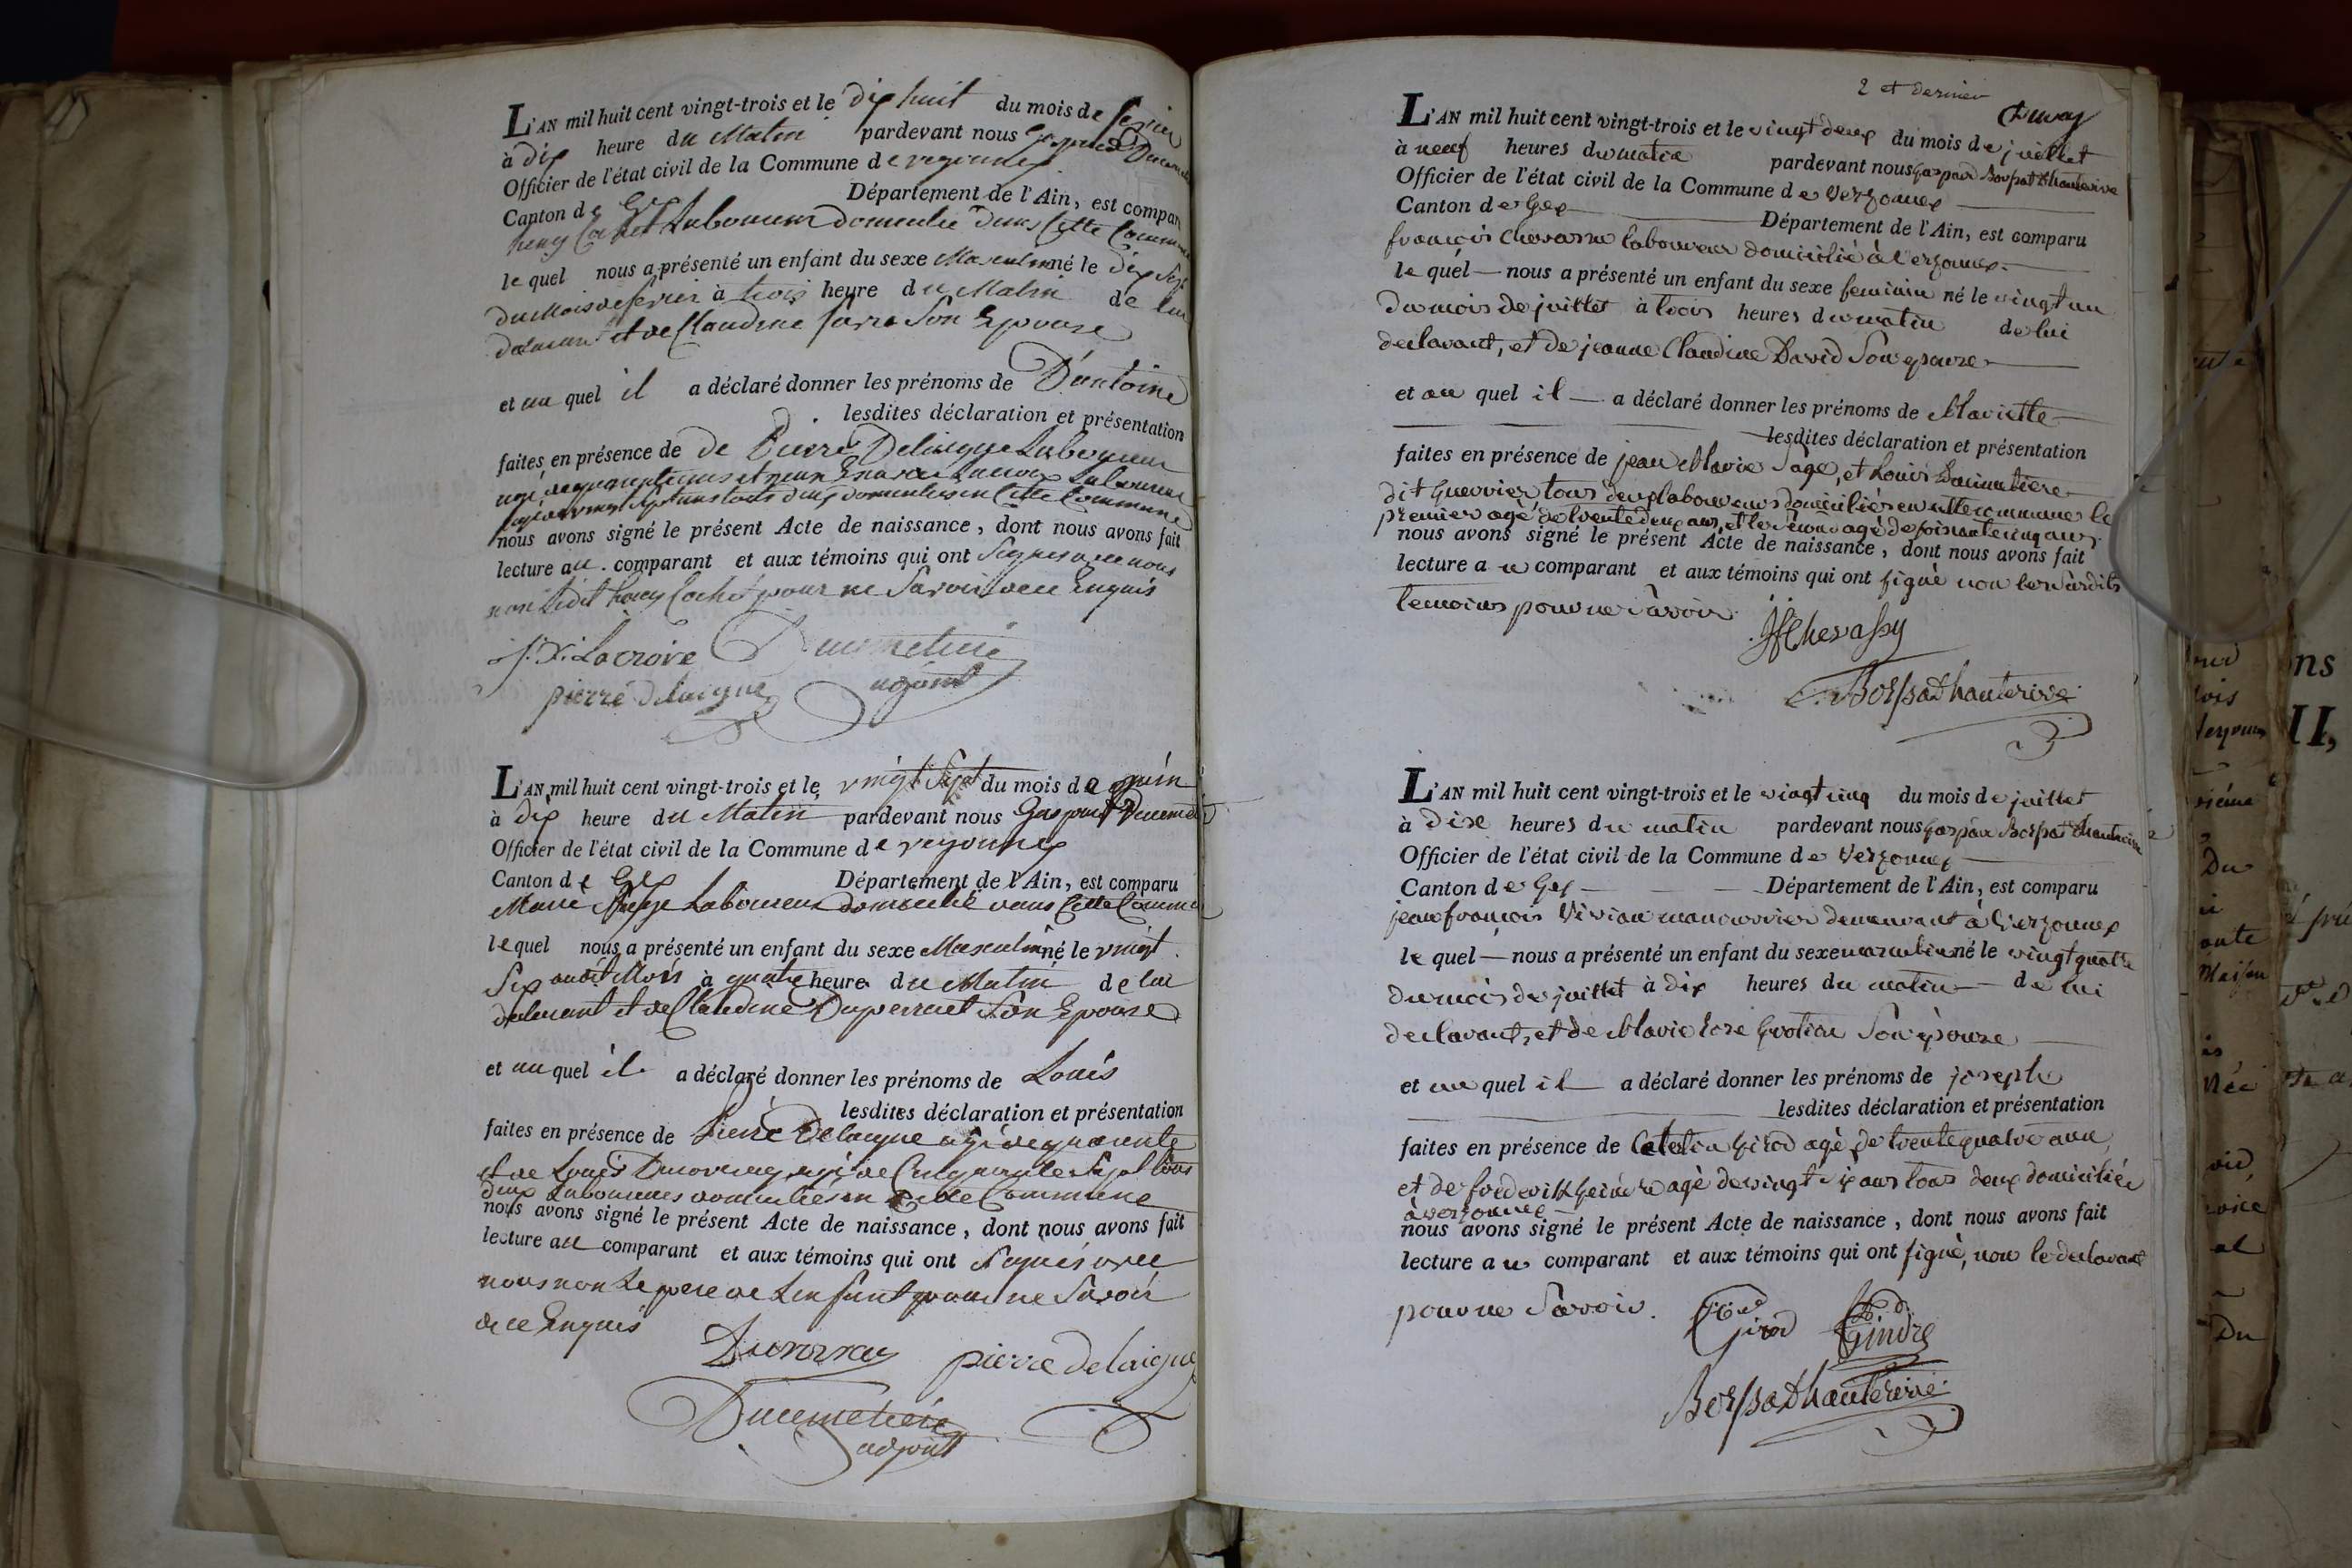 L'AN mil huit cent vingt-trois et le dix huit du mois de fevrier
à dix heure du Matin pardevant nous
Officier de l'état civil de la Commune de vezonnex
Canton de Gex Département de l'Ain, est compar
Laboureur domicilié dans Cette Commune
le quel nous a présenté un enfant du sexe Masculin né le dix Sept
du Mois de fevrier à trois heure du Matin de lui
et de Claudine Son Epouse
et au quel il a déclaré donner les prénoms de D'antoine
lesdites déclaration et présentation
faites en présence de de Pierre Delaigue Laboureur
tous deux domiciliés en Cette Commune
nous avons signé le présent Acte de naissance, dont nous avons fait
lecture au comparant et aux témoins qui ont Signés avec nous
non Ledit pour ne Savoir de ce Enquis
Lacroix Ducimetière
pierre delaigue adjoint
L'AN mil huit cent vingt-trois et le vingt Sept du mois de juin
à dix heure du Matin pardevant nous Gaspard
Officier de l'état civil de la Commune de vezonnex
Canton de Gex Département de l'Ain, est comparu
Marie Laboureur domicilié dans Cette Commune
le quel nous a présenté un enfant du sexe Masculin né le vingt
Six dudit Mois à quatre heure du Matin de lui
declarant et de Claudine Duperruet Son Epouse
et au quel il a déclaré donner les prénoms de Louis
lesdites déclaration et présentation
faites en présence de Pierre Delaigue agé de quarante
et de Louis agé de Cinquante Sept tous
deux Laboureurs domiciliés en Cette Commune
nous avons signé le présent Acte de naissance, dont nous avons fait
lecture au comparant et aux témoins qui ont Signés avec
nous non Le pere de Lenfant pour ne Savoir
de ce Enquis
pierre delaigue
Ducimetière
adjoint
2 et dernier
L'AN mil huit cent vingt-trois et le vingt deux du mois de juillet
à neuf heures du matin pardevant nous gaspard Borssat d'hauterive
Officier de l'état civil de la Commune de Verzonnex
Canton de Gex Département de l'Ain, est comparu
françois chevassu laboureur domicilié à Verzonnex
le quel nous a présenté un enfant du sexe feminin né le vingt un
du mois de juillet à trois heures du matin de lui
declarant, et de jeanne Claudine David Son epouse
et au quel il a déclaré donner les prénoms de Mariette
lesdites déclaration et présentation
faites en présence de jean Marie Sage, et Louis Ducimetiere
dit Guerrier tous deux laboureurs domiciliés en cette commune le
premier agé de trente deux ans, et le second agé de soixante cinq ans
nous avons signé le présent Acte de naissance, dont nous avons fait
lecture au comparant et aux témoins qui ont signé non les susdits
temoins pour ne savoir.
Chevassu
Borssat d'hauterive
L'AN mil huit cent vingt-trois et le vingt cinq du mois de juillet
à dixe heures du matin pardevant nous gaspar Borssat d'hauterive
Officier de l'état civil de la Commune de Verzonnex
Canton de Gex Département de l'Ain, est comparu
jean françois Vivian manouvrier demeurant à Verzonnex
le quel nous a présenté un enfant du sexe masculin né le vingt quatre
du mois de juillet à dix heures du matin de lui
declarant, et de Marie Rose Grotian Son épouse
et au quel il a déclaré donner les prénoms de joseph
lesdites déclaration et présentation
faites en présence de girod agé de trente quatre ans
et de frederik agé de vingt six ans tous deux domiciliés
à verzonnex
nous avons signé le présent Acte de naissance, dont nous avons fait
lecture au comparant et aux témoins qui ont signé, non le declarant
pour ne Savoir. Girod Gindre
Borssat d'hauterive